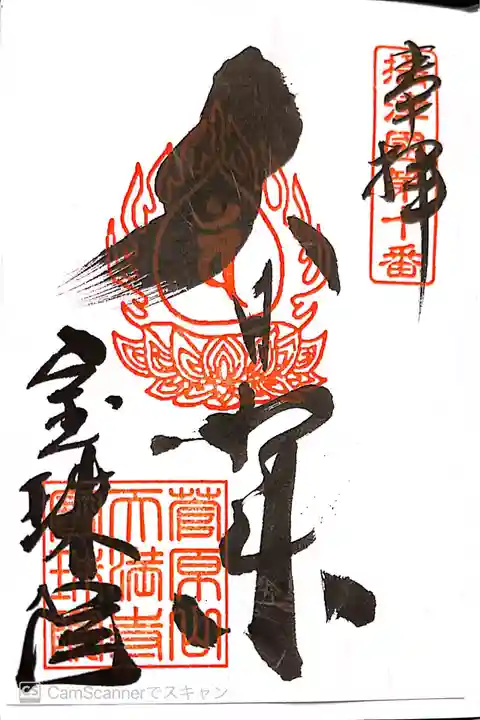 奉拝
攝津國第十番
大日如来
宝珠院
菅原山
天満寺
寶珠院
CS CamScannerでスキャン